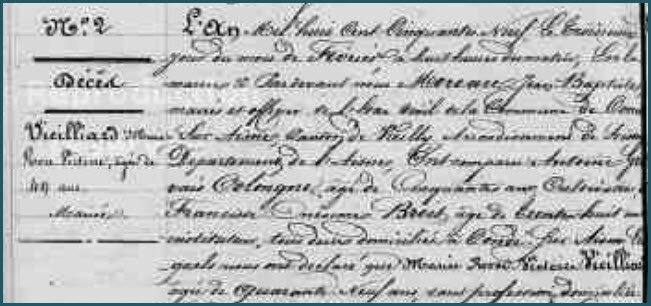 N.º 2
Décès
Vieilliard Marie
Rose Victoire, âgée de
49 ans
Mariée
L'An Mil huit Cent Cinquante Neuf le troisième
jour du mois de Février à huit heures du matin, Par le
maire & Pardevant nous Moreau Jean Baptiste
maire et officier de l'état civil de la Commune de Condé
Sur Aisne, Canton de Vailly Arrondissement de
Département de l'Aisne, Ont comparu Antoine
Cologne, âgé de Cinquante ans Cultivateur
Francisse Onésime Brost, âgé de trente huit ans
instituteur, tous deux domiciliés à Condé Sur Aisne
quels nous ont déclaré que Marie Rose Victoire Vieilliard
agée de Quarante Neuf ans, sans profession, domiciliée